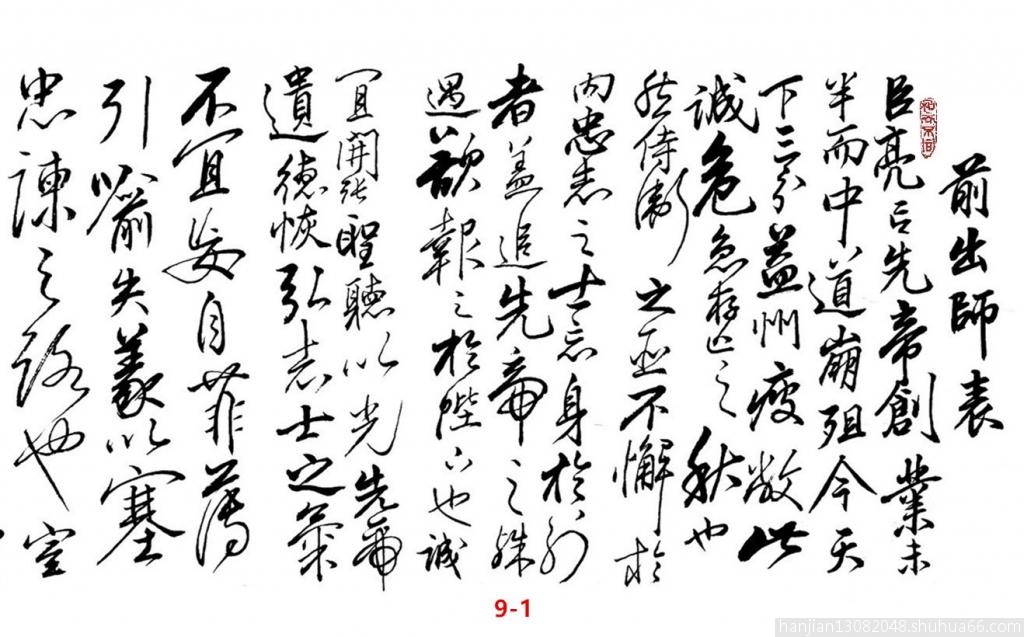 前出師表
臣亮言先帝創業未
半而中道崩殂今天
下三分益州疲敝此
誠危急存亡之秋也
然侍衛之臣不懈於
內忠志之士忘身於外
者蓋追先帝之殊
遇欲報之於陛下也誠
宜開張聖聽以光先帝
遺德恢弘志士之氣
不宜妄自菲薄
引喻失義以塞
忠諫之路也宮
9-1
hanjian13082048.shuhua66.com